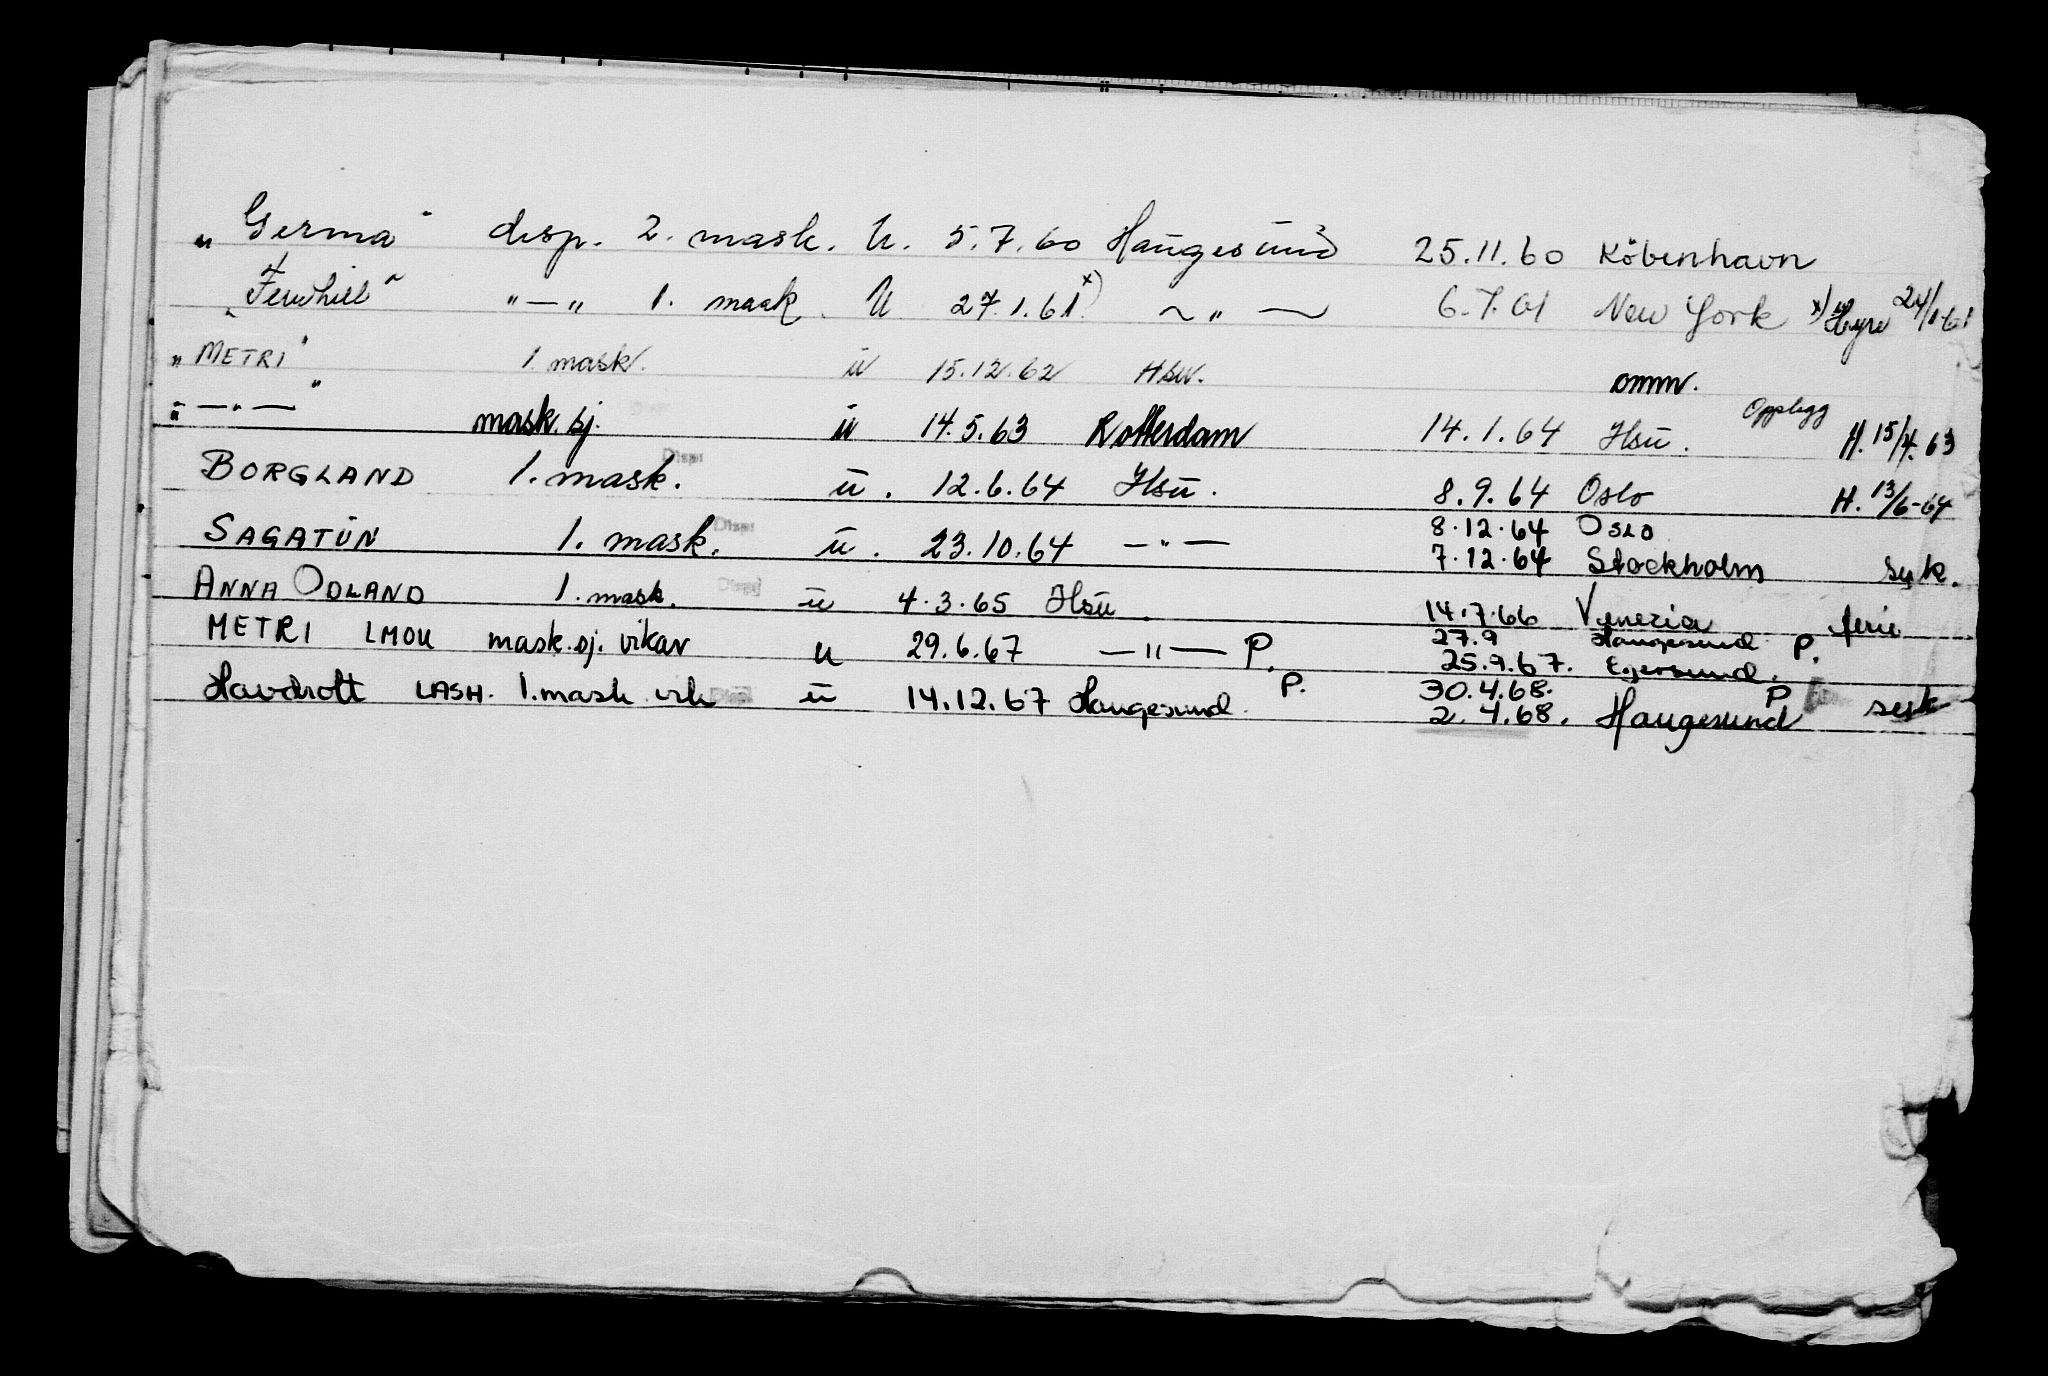 „Germa" disp. 2. mask. U. 5.7.60 Haugesund 25.11.60 Köbenhavn
„Fernhill" "—" 1. mask. U 27.1.61 x) ~ " — 6.7.61 New York x) Hyre 24/1-61
„METRI" 1 mask. ū 15.12.62 Hsu. omm.
" — " — " mask. sj. ū 14.5.63 Rotterdam 14.1.64 Hsū. Opplegg H. 15/4.63
BORGLAND 1. mask. Disp: ū. 12.6.64 Hsū. 8.9.64 Oslo H. 13/6-64
SAGATŪN 1. mask. Disp: ū. 23.10.64 — " — 8.12.64 OSLO
7.12.64 Stockholm syk.
ANNA ODLAND 1. mask. Disp: ū 4.3.65 Hsū. 14.7.66 Venezia ferie
METRI LMOU mask.sj. vikar u 29.6.67 — " — P. 27.9 Haugesund P.
25.9.67. Egersund.
Havdrott LASH. 1. mask vik ū 14.12.67 Haugesund P. 30.4.68. P
2.4.68. Haugesund syk